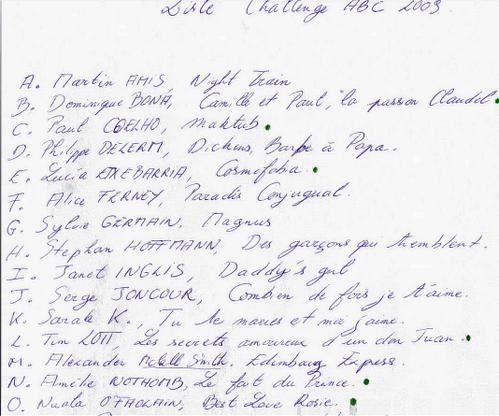 Liste Challenge ABC 2009.
A. Martin AMIS, Night Train
B. Dominique BONA, Camille et Paul, la passion Claudel
C. Paul COELHO, Maktub
D. Philippe DELERM, Dickens, Barbe à Papa.
E. Lucia ETXEBARRIA, Cosmofobia.
F. Alice FERNEY, Paradis Conjugual.
G. Sylvie GERMAIN, Magnus
H. Stephan HOFFMANN, Des garçons qui tremblent.
I. Janet INGLIS, Daddy's girl
J. Serge JONCOUR, Combien de fois je t'aime.
K. Sarah K., Tu te maries et moi j'aime.
L. Tim LOTT, Les secrets amoureux d'un don Juan.
M. Alexander McCall Smith. Edimbourg Express.
N. Amélie NOTHOMB, Le fait du Prince.
O. Nuala O'FAOLAIN, Best Love Rosie.